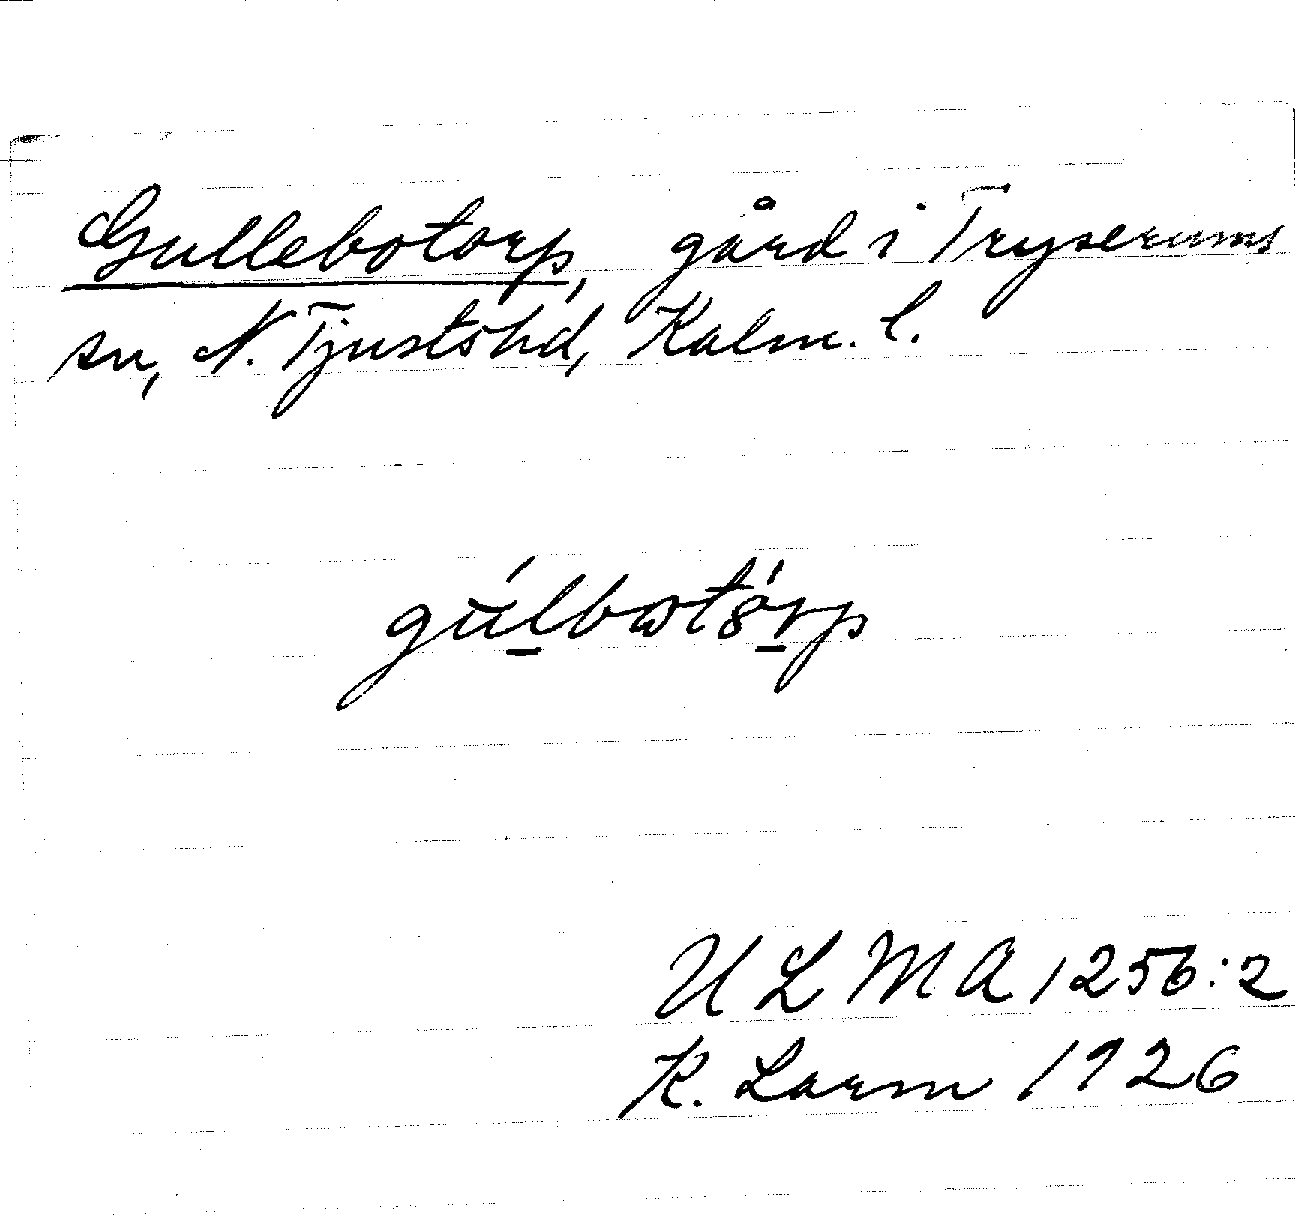 Gullebotorp, gård i Tryserums
sn, N. Tjusts hd, Kalm. l.
gúlbωtórp
U L M A 1256:2
K. Larm 1926